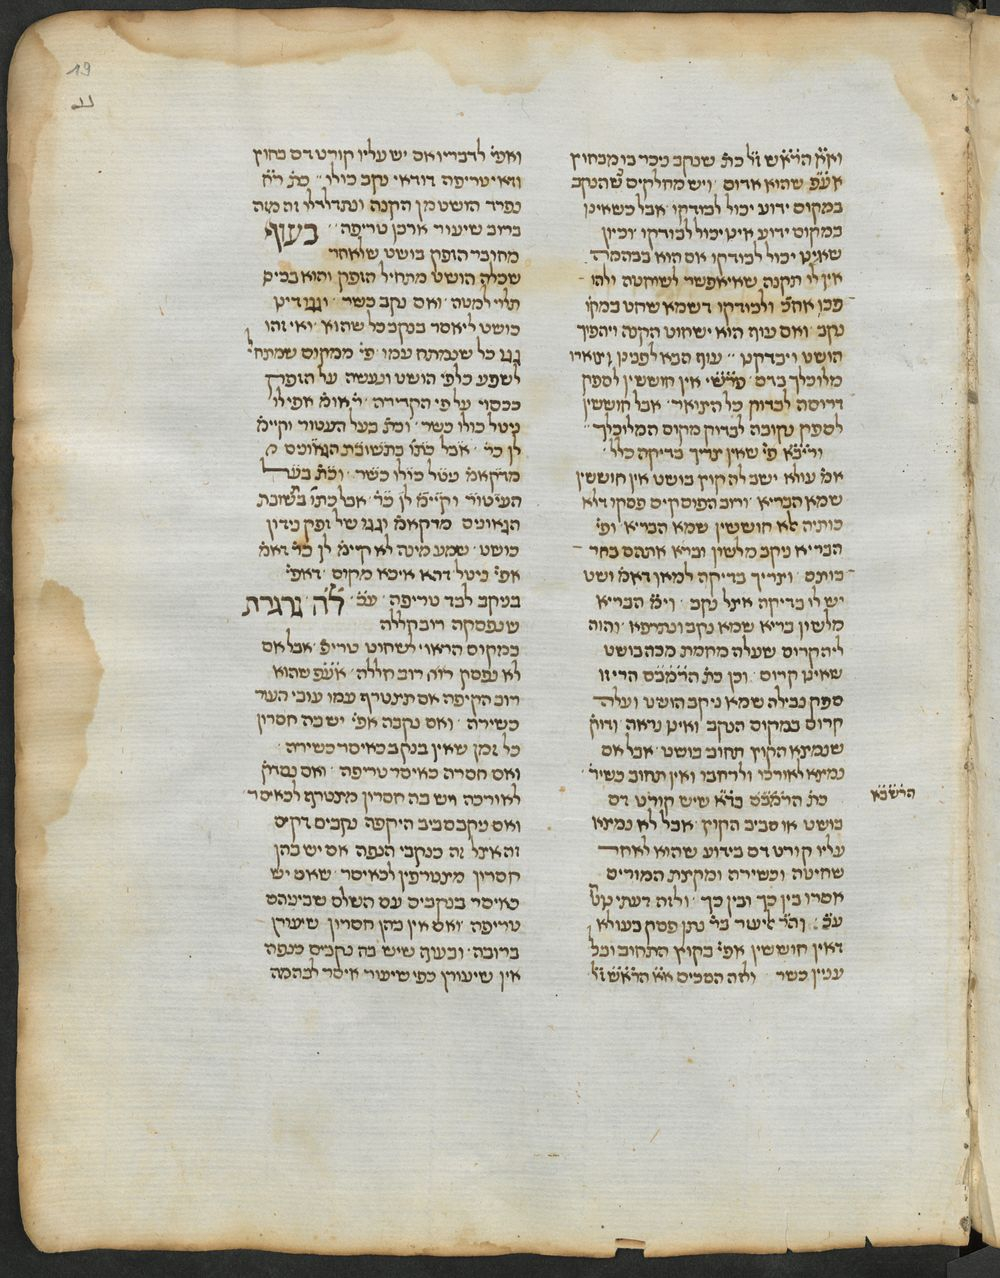 וא״א הרא״ש ז״ל כת׳ שנקב ניכר בו מבחוץ
אע״פ שהוא אדום ויש מחלקים שהנקב
במקום ידוע יכול לבודקו אבל כשאינו
במקום ידוע אינו יכול לבודקו וכיון
שאינו יכול לבודקו אם הוא בבהמה
אין לו תקנה שאי אפשר לשוחטה ולהו
ולבודקו דשמא שחט במקו׳
נקב ואם עוף הוא ישחוט הקנה ויהפוך
הושט ויבדקנו עוף הבא לפנינו וצוארו
מלוכלך בדם אין חוששין לספק
דרוסה לבדוק כל הצואר אבל חוששין
לספק נקובה לבדוק מקום המלוכלך
פי׳ שאין צריך בדיקה כלל
אמ׳ עולא ישב לה קוץ בושט אין חוששין
שמא הבריא ורוב הפוסקים פסקו דלא
כותיה אלא חוששין שמא הבריא ופי׳
הבריא ניקב מלשון וברא אתהם בחר
בותם וצריך בדיקה למאן דאמ׳ ושט
יש לו בדיקה אצל נקב הבריא
מלשון בריא שמא נקב ונתרפא והוה
ליה קרום שעלה מחמת מכה בושט
שאינו קרום וכן כת׳ הרמב״ם הרי זו
ספק נבילה שמא ניקב הושט ועלה
קרום במקום הנקב ואינו נראה ודוק׳
שנמצא הקוץ תחוב בושט אבל אם
נמצא לאורכו ולרחבו ואין תחוב כשיר׳
כת׳ הרמב״ם בד״א שיש קורט דם
בושט או סביב הקוץ אבל לא נמצא
עליו קורט דם בידוע שהוא לאחר
שחיטה וכשירה ומקצת המורים
אסרו בין כך ובין כך ולזה דעתי
ע״כ והר׳ אליעזר בר׳ נתן פסק כעולא
דאין חוששין אפי׳ בקוץ התחוב ובכל
ענין כשר ולזה הסכים א״א הרא״ש ז״ל
הרשב״א
ואפי׳ לדבריו אם יש עליו קורט דם בחוץ
ודאי טריפה דודאי נקב כולו
נפרד הושט מן הקנה ונתדלדלו זה מזה
ברוב שיעור ארכן טריפה בעוף
מחובר הזפק בושט שלאחר
שכלה הושט מתחיל הזפק והוא בכיס
תלוי למטה ואם נקב כשר וגגו דינו
כושט ליאסר בנקב כל שהוא ואי זהו
גגו כל שנמתח עמו פי׳ ממקום שמתחי׳
לשפע כלפי הושט ונעשה על הזפק
ככסוי על פי הקדירה אפילו
ניטל כולו כשר וכת׳ בעל העטור וקיימ׳
לן כר׳ אבל כתו׳ בתשובת הגאונים
ניטל כולו כשר וכת׳ בעל
העיטור וקיימ׳ לן כר׳ אבל כתו׳ בתשובת
הגאונים מדקאמ׳ וגגו של זפק נידון
כושט שמע מינה לא קיימ׳ לן כר׳ דאמ׳
אפי׳ ניטל דהא איכא מקום דאפי׳
בניקב לבד טריפה ע״כ לה גרגרת
שנפסקה רובה ללה
במקום הראוי לשחוט טריפ׳ אבל אם
לא נפסק רוב חללה אע״פ שהוא
רוב הקיפה אם תצטרף עמו עובי העור
כשירה ואם נקבה אפי׳ יש בה חסרון
כל זמן שאין בנקב כאיסר כשירה
ואם חסרה כאיסר טריפה ואם נסדק
לאורכה ויש בה חסרון מצטרף לכאיסר
ואם ניקב סביב היקפה נקבים דקים
זה אצל זה כנקבי הנפה אם יש בהן
חסרון מצטרפין לכאיסר שאם יש
כאיסר בנקבים עם השלם שביניהם
טריפה ואם אין בהן חסרון שיעורן
ברובה ובעוף שיש בה נקבים כנפה
אין שיעורן כפי שיעור איסר לבהמה
19